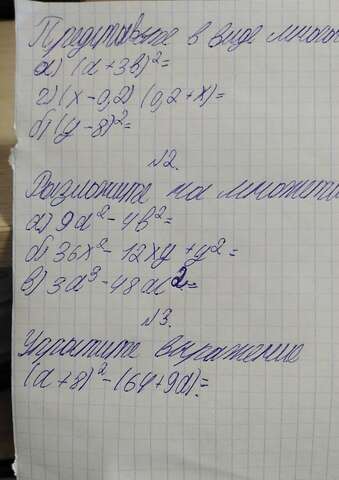 Представьте в виде много
а) (а+3в)²=
г) (х-0,2) (0,2+х)=
б) (у-8)²=
N2.
Разложите на множети
а) 9а²-4в²=
б) 36х²-12ху+у²=
в) 3а³-48а2=
N3.
Упростите выражение
(а+8)²-(64+9а)=